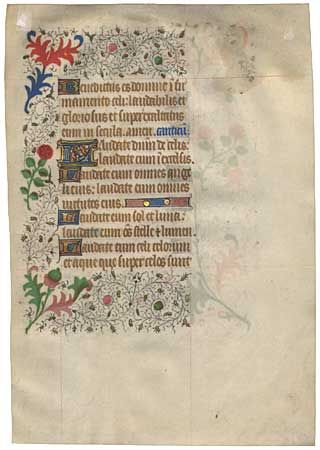 Benedictus es domine i fir
mamento celi: laudabilis et
gloriosus et superexaltatus
eum in secula. amen. canticũ.
Laudate dñm de celis:
laudate eum i excelsis.
Laudate eum omnes angeli
eius: laudate eum omnes
virtutes eius.
Laudate eum sol et luna:
laudate eum oẽs stelle et lumen.
Laudate eum celi celorum
et aque que super celos sunt